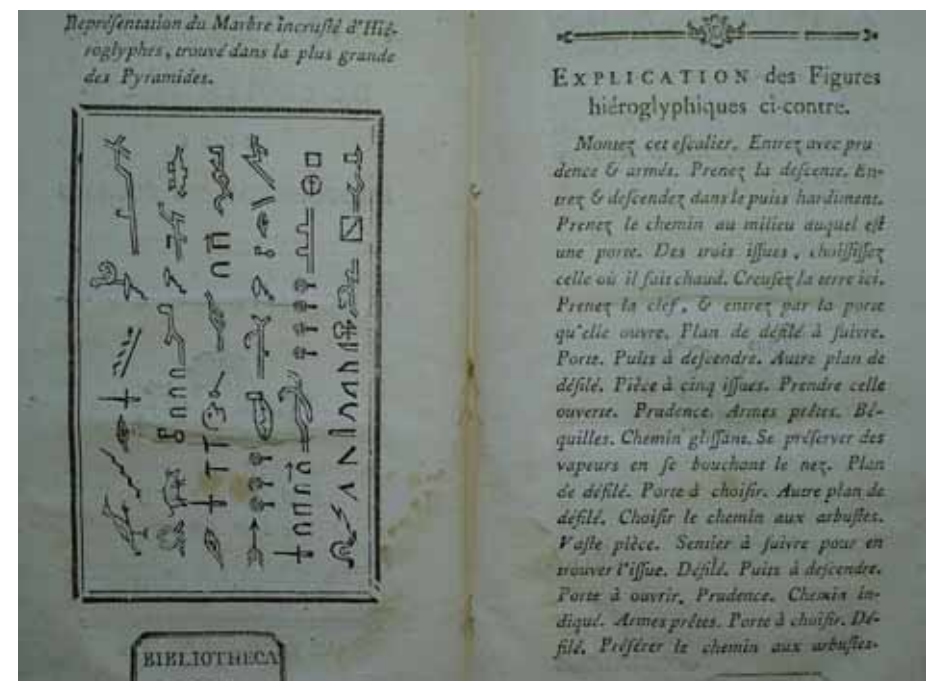 Représentation du Marbre incrusté d'Hié-
roglyphes, trouvé dans la plus grande
des Pyramides.
BIBLIOTHECA
EXPLICATION des Figures
hiéroglyphiques ci-contre.
Montez cet eſcalier. Entrez avec pru
dence & armés. Prenez la deſcente. En-
trez & deſcendez dans le puits hardiment.
Prenez le chemin au milieu auquel eſt
une porte. Des trois iſſues, choiſiſſez
celle où il fait chaud. Creuſez la terre ici.
Prenez la clef, & entrez par la porte
qu'elle ouvre. Plan de défilé à ſuivre.
Porte. Puits à deſcendre. Autre plan de
défilé. Pièce à cinq iſſues. Prendre celle
ouverte. Prudence. Armes prêtes. Bé-
quilles. Chemin gliſſant. Se préſerver des
vapeurs en ſe bouchant le nez. Plan
de défilé. Porte à choiſir. Autre plan de
défilé. Choiſir le chemin aux arbuſtes.
Vaſte pièce. Sentier à ſuivre pour en
trouver l'iſſue. Défilé. Puits à deſcendre.
Porte à ouvrir. Prudence. Chemin in-
diqué. Armes prêtes. Porte à choiſir. Dé-
filé. Préférer le chemin aux arbuſtes.